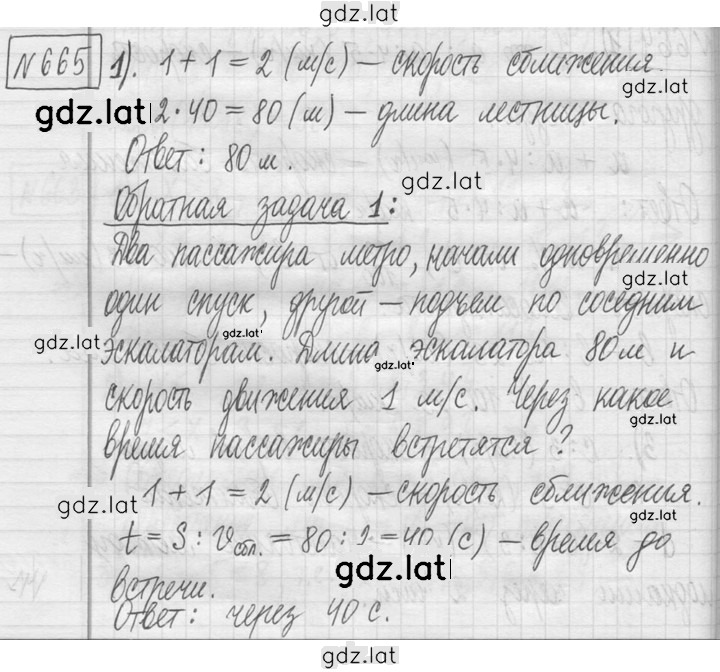 gdz.lat
№665 1). 1 + 1 = 2 (м/с) – скорость сближения.
gdz.lat 2·40 = 80 (м) – длина лестницы.
Ответ: 80 м.
gdz.lat
Обратная задача 1:
Два пассажира метро, начали одновременно
gdz.lat
один спуск, другой – подъем по соседним
gdz.lat gdz.lat
эскалаторам. Длина эскалатора 80 м и
gdz.lat
скорость движения 1 м/с. Через какое
gdz.lat
время пассажиры встретятся?
gdz.lat 1 + 1 = 2 (м/с) – скорость сближения.
gdz.lat
t = S : V сбл. = 80 : 2 = 40 (с) – время до
gdz.lat
встречи.
Ответ: через 40 с.
gdz.lat